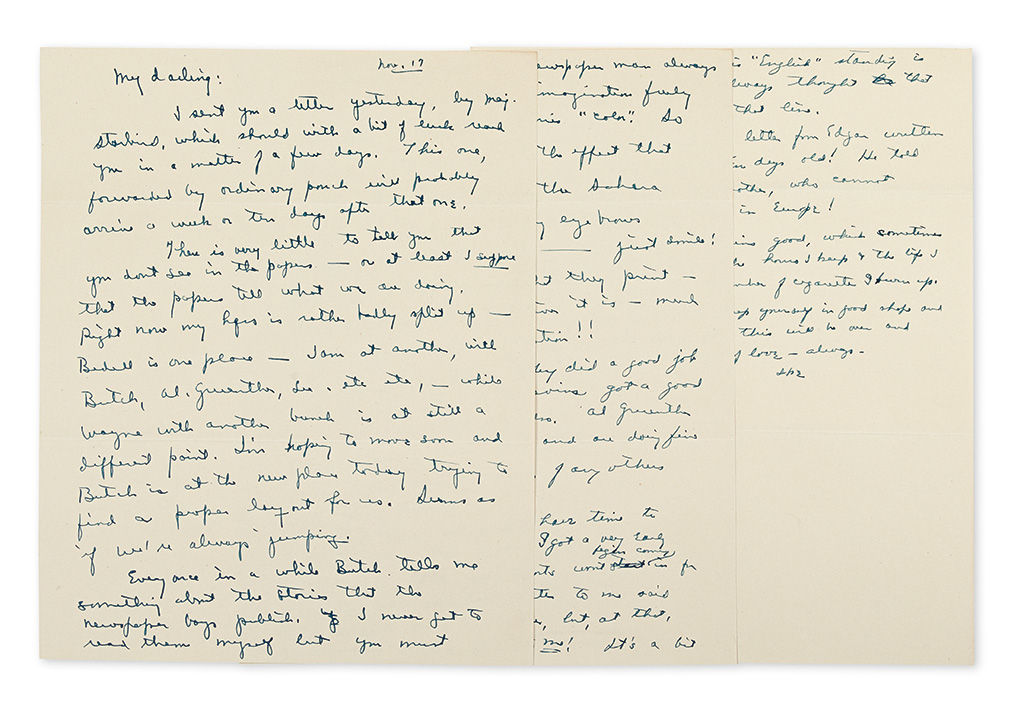 Nov. 17
My darling:
I sent you a letter yesterday, by Maj.
Starbird, which should with a bit of luck reach
you in a matter of a few days. This one,
forwarded by ordinary pouch will probably
arrive a week or ten days after that one.
There is very little to tell you that
you don't see in the papers — or at least I suppose
that the papers tell what we are doing.
Right now my hqrs is rather badly split up —
Bedell is one place — I am at another, with
Butch, Al. Gruenther, Lee. etc etc, — while
Wayne with another bunch is at still a
different point. I'm hoping to move soon and
Butch is at the new place today trying to
find a proper lay out for us. Seems as
if we're always jumping.
Every once in a while Butch tells me
something about the stories that the
newspaper boys publish. I never get to
read them myself but you must
newspaper man always
imagination freely
"color". So
the effect that
the Sahara
my eyebrows
just smile!
they print —
it is — much
!!
they did a good job
got a good
Al Gruenther
and are doing fine
of any others
have time to
I got a very early
coming
won't in for
to me said
, but, at that,
me! It's a bit
"English" standing is
always thought that
that line.
letter from Edgar written
ten days old! He told
, who cannot
in Europe!
good, which sometimes
the hours I keep & the life I
number of cigarettes I burn up.
up yourself in good shape and
this will be over and
of love — always —
Ike